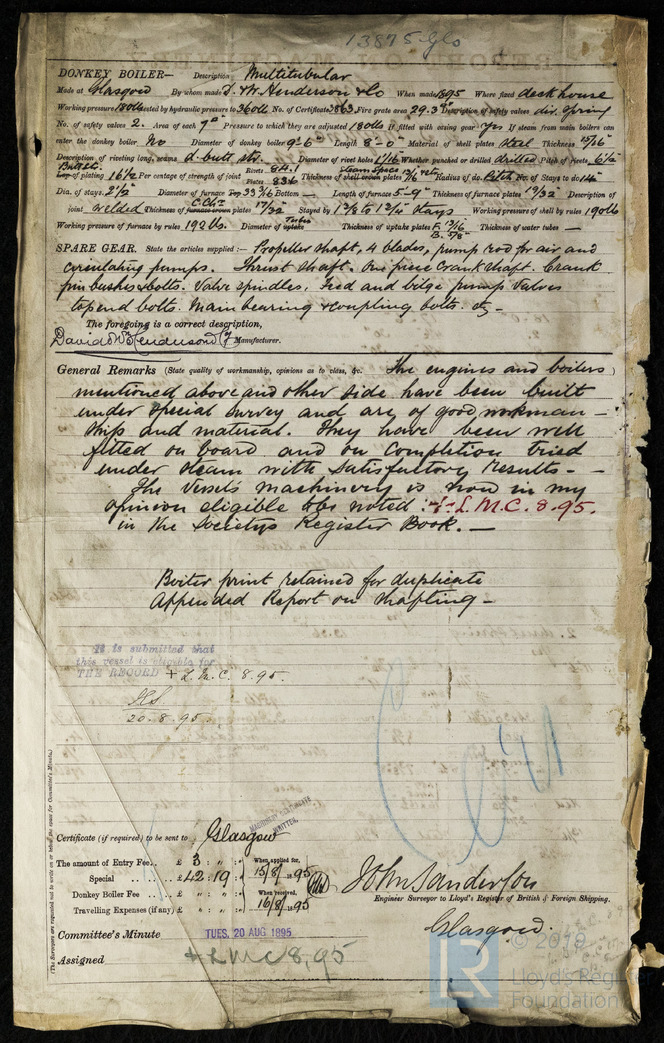 13875 Glo
DONKEY BOILER— Description Multitubular
Made at Glasgow By whom made D. & W. Henderson & Co When made 1895 Where fixed deck house
Working pressure 180 lbs tested by hydraulic pressure to 360 lb No. of Certificate 3863 Fire grate area 29.3 Description of safety valves dir. Spring
No. of safety valves 2. Area of each 7" Pressure to which they are adjusted 180 lbs If fitted with easing gear Yes If steam from main boilers can
enter the donkey boiler No Diameter of donkey boiler 9'-6" Length 8'-0" Material of shell plates Steel Thickness 13/16"
Description of riveting long. seams d. butt str. Diameter of rivet holes 1 1/16 Whether punched or drilled drilled Pitch of rivets 6 1/2
Lap of plating 16 1/2 Per centage of strength of joint Rivets 84.1 Plates 83.6 Thickness of shell crown plates 13/16 Radius of do. No. of Stays to do. 14
Dia. of stays. 2 1/2 Diameter of furnace Top 33 3/16 Bottom — Length of furnace 5'-9" Thickness of furnace plates 19/32 Description of
joint welded Thickness of furnace crown plates 17/32 Stayed by 1 3/8 to 1 3/4 stays Working pressure of shell by rules 190 lb
Working pressure of furnace by rules 192 lbs. Diameter of uptake Thickness of uptake plates F. 13/16 B. 5/8 Thickness of water tubes —
SPARE GEAR. State the articles supplied:— Propeller shaft, 4 blades, pump rod for air and
circulating pumps. Thrust shaft. One piece Crank shaft. Crank
pin bushes & bolts. Valve spindles, Feed and bilge pump valves
top end bolts. Main bearing & coupling bolts. &c—
The foregoing is a correct description,
David & W. Henderson & Co Manufacturer.
General Remarks (State quality of workmanship, opinions as to class, &c. The engines and boilers
mentioned above and other side have been built
under Special Survey and are of good workman—
ship and material. They have been well
fitted on board and on completion tried
under steam with satisfactory results—
The Vessel's machinery is now in my
opinion eligible to be noted + L.M.C. 8.95.
in the Society's Register Book.—
Boiler print retained for duplicate
Appended Report on shafting—
It is submitted that
this vessel is eligible for
THE RECORD + L.M.C. 8.95.
20.8.95.
MACHINERY CERTIFICATE
WRITTEN.
Certificate (if required) to be sent to Glasgow
The amount of Entry Fee.. £ 3 : " : " When applied for,
Special .. .. £ 42 : 19 : " 15/8/1895
Donkey Boiler Fee .. .. £ " : " : " When received,
Travelling Expenses (if any) £ " : " : " 16/8/1895
John Sanderson
Engineer Surveyor to Lloyd's Register of British & Foreign Shipping.
Committee's Minute TUES. 20 AUG 1895
Glasgow.
Assigned + LMC 8,95
(The Surveyors are requested not to write on or below the space for Committee's Minute.)
LR
© 2019
Lloyd's Register
Foundation